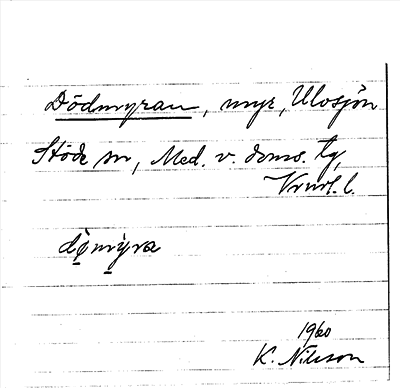 Dödmyran, myr, Ulosjön
Stöde sn, Med. v. doms. tg,
Vnrl. l.
dö̀mỳra
1960
K. Nilsson